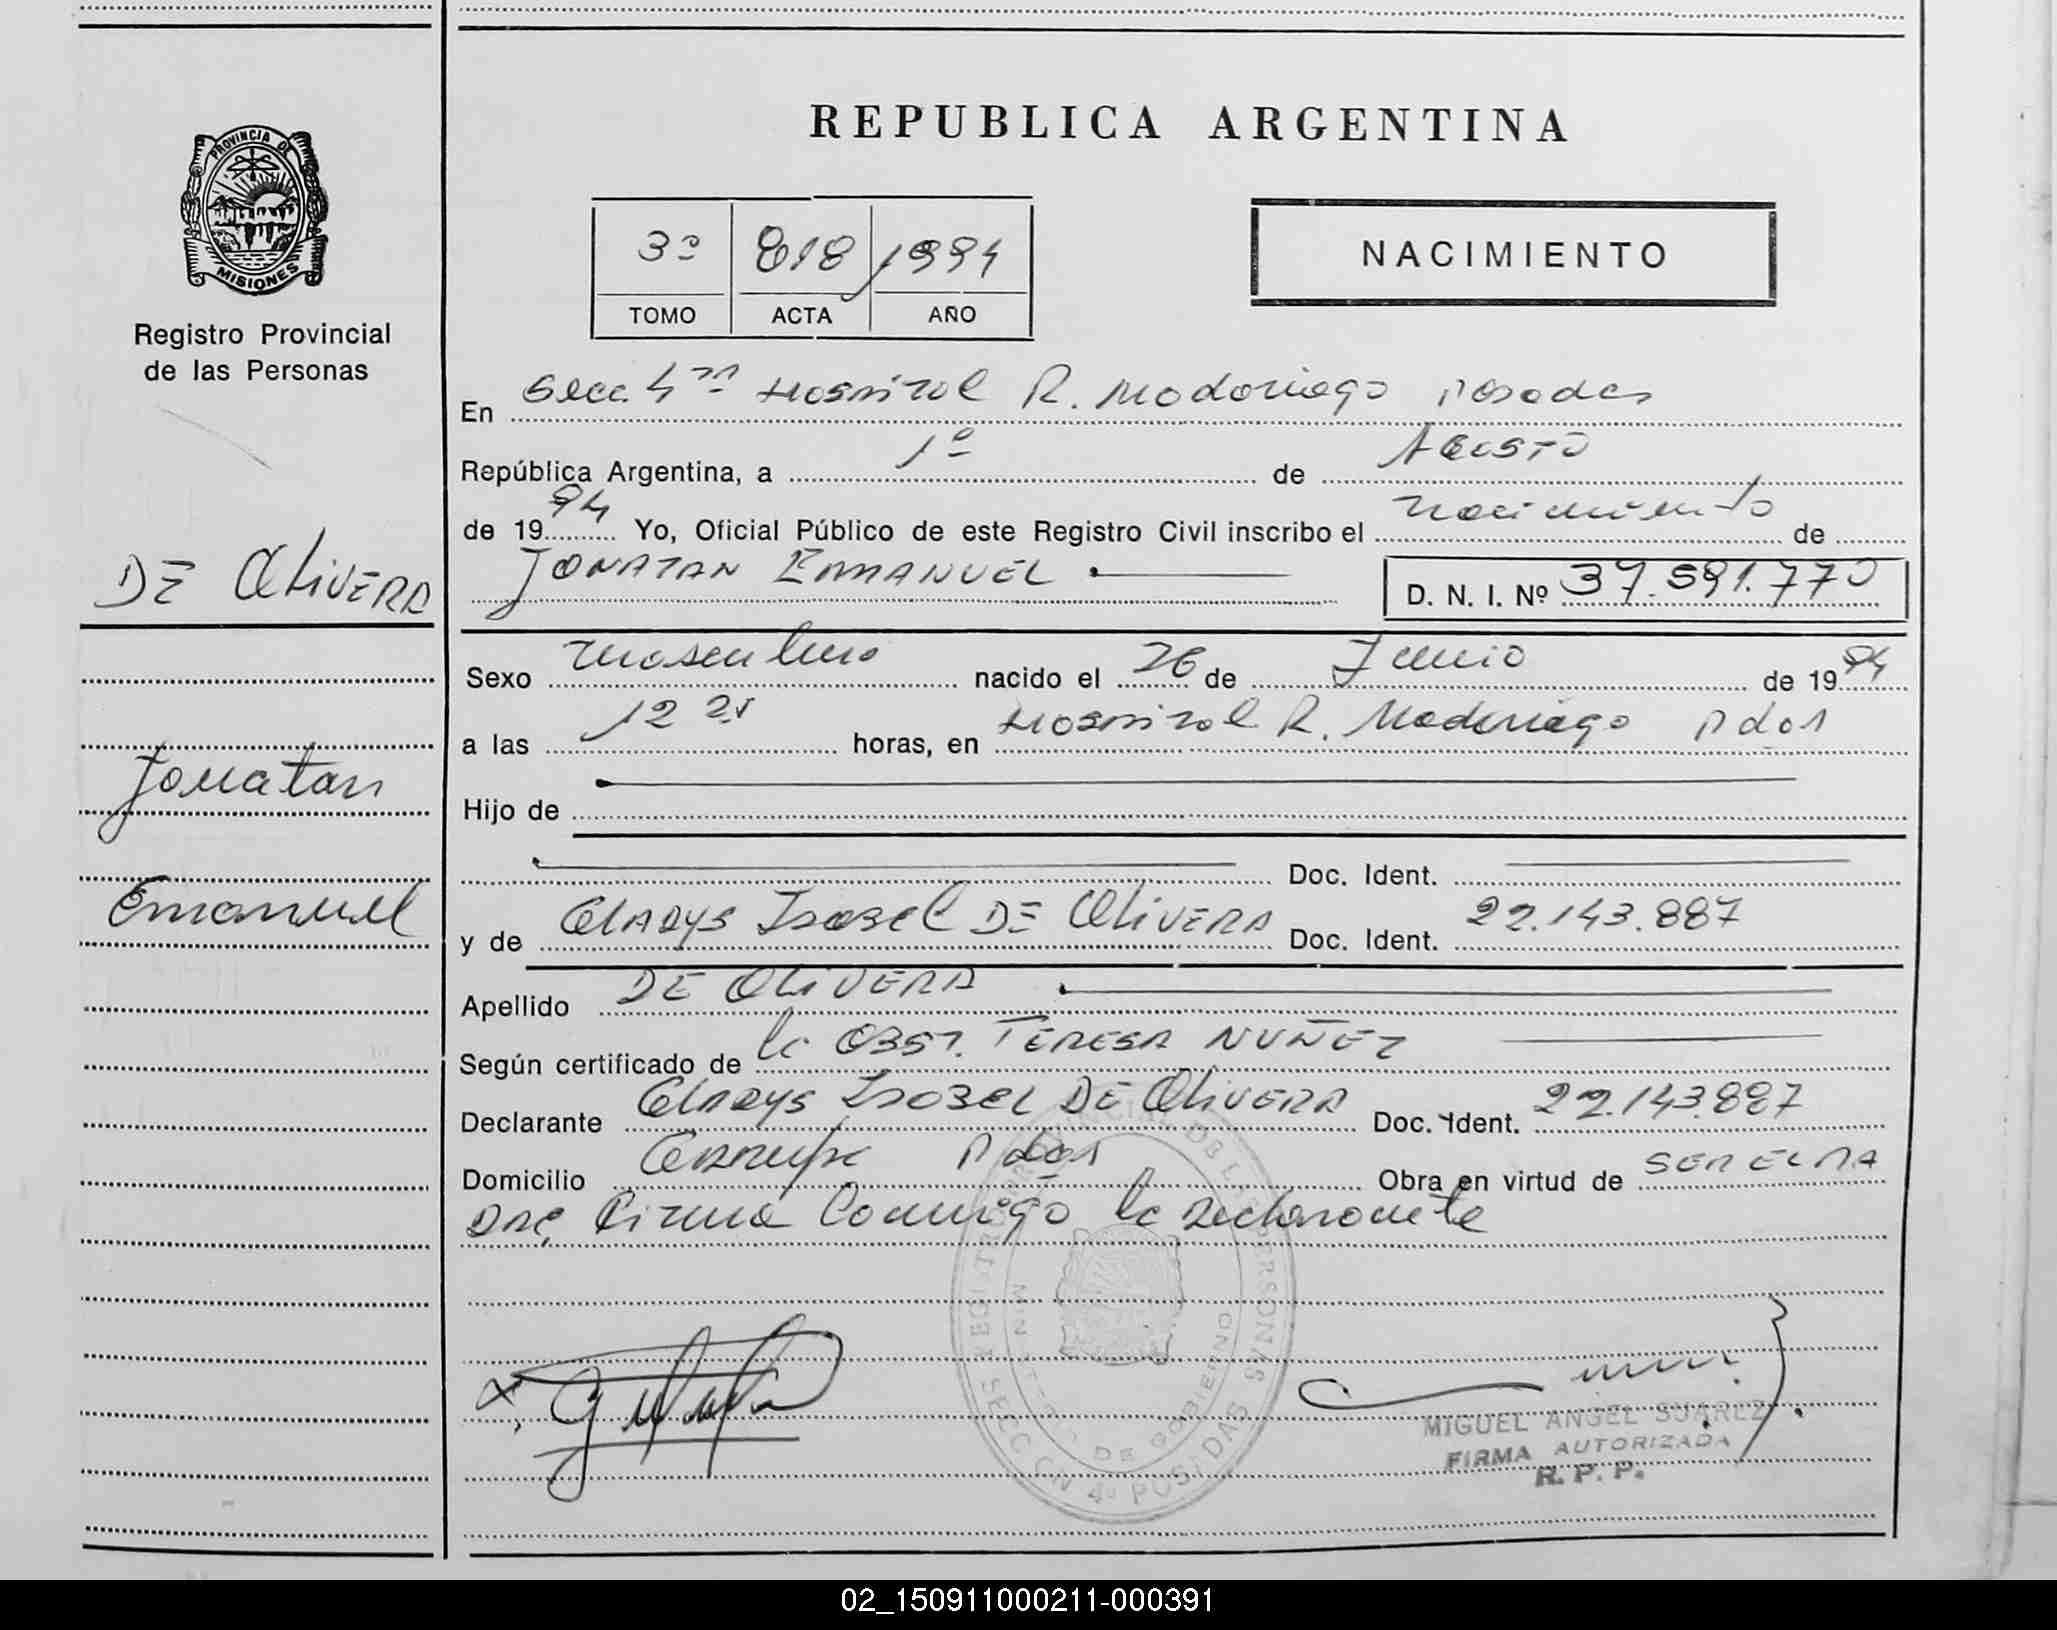 REPUBLICA ARGENTINA
PROVINCIA DE
MISIONES
Registro Provincial
de las Personas
3º 818 1994
TOMO ACTA AÑO
NACIMIENTO
En Secc. 4ta Hospital R. Madariaga Posadas
República Argentina, a 1º de Agosto
de 1994 Yo, Oficial Público de este Registro Civil inscribo el nacimiento de
JONATAN EMMANUEL D. N. I. Nº 37.591.770
DE OLIVERA
Jonatan
Emanuel
Sexo masculino nacido el 26 de Junio de 1994
a las 12 horas, en Hospital R. Madariaga Pdas
Hijo de
Doc. Ident.
y de GLADYS ISABEL DE OLIVERA Doc. Ident. 22.143.887
Apellido DE OLIVERA
Según certificado de la OBST. TERESA NUÑEZ
Declarante GLADYS ISABEL DE OLIVERA Doc. Ident. 22.143.887
Domicilio Pdas Obra en virtud de SER EL LA
Firma Conmigo la declarante
REGISTRO PROVINCIAL DE LAS PERSONAS
MINISTERIO DE GOBIERNO
SECCION 4º POSADAS
MIGUEL ANGEL SUAREZ
FIRMA AUTORIZADA
R. P. P.
02_150911000211-000391